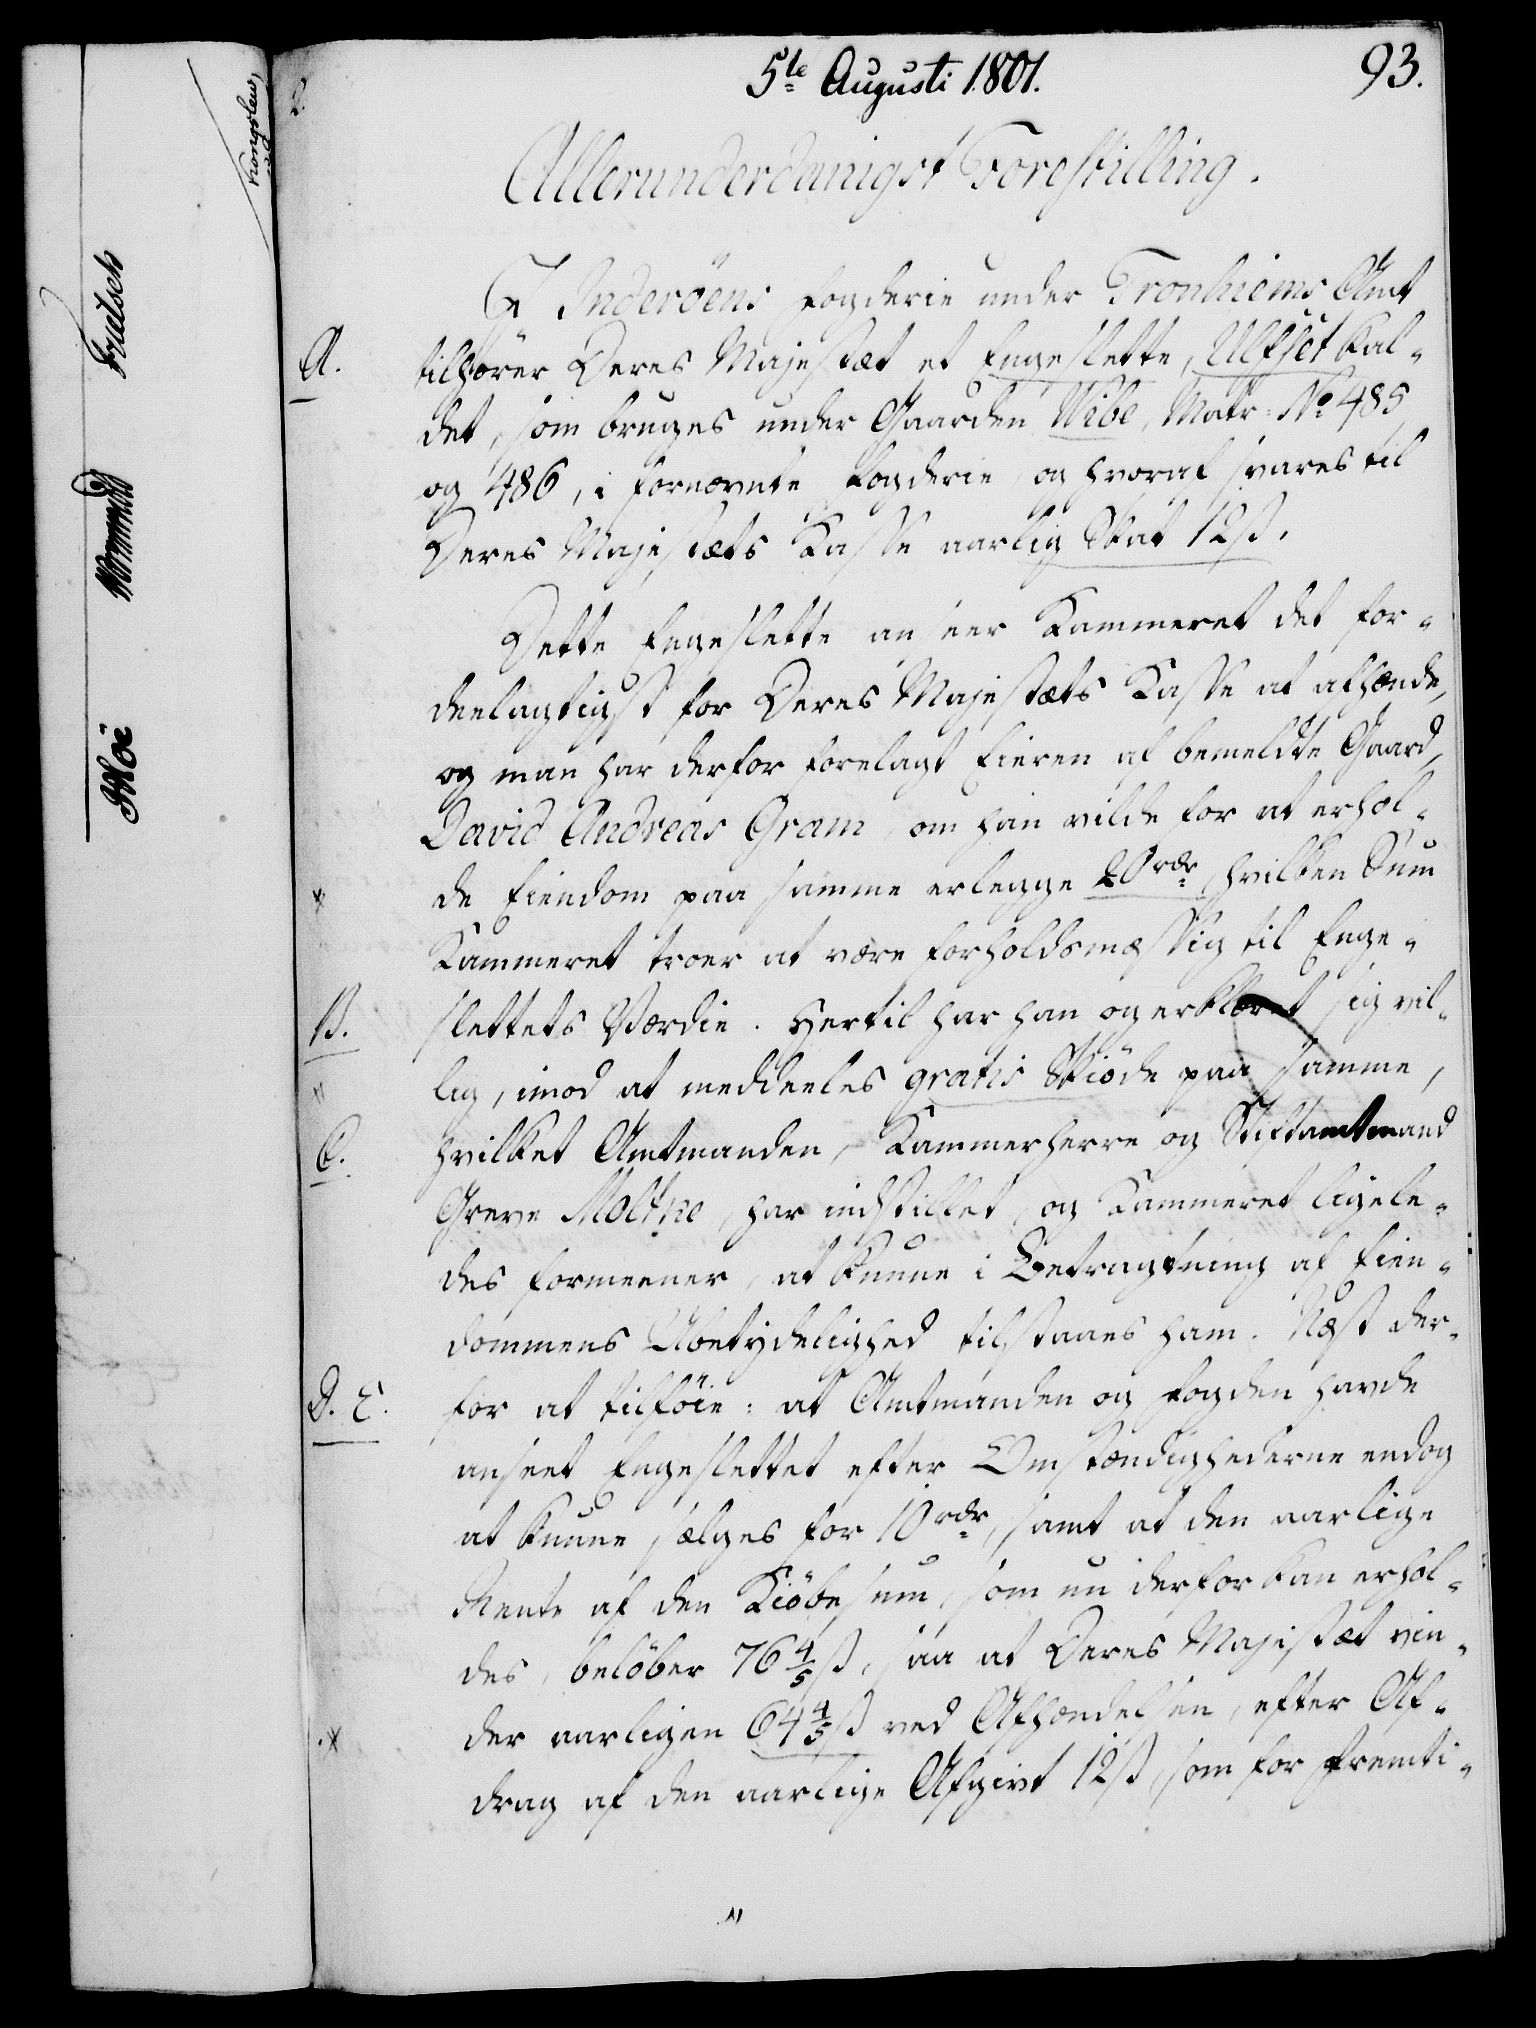 5te Augusti 1801.
93.
Allerunderdanigst Forestilling.
I Inderöens Fogderie under Tronhiems Amt
A.
tilhører Deres Majestæt et Engeslette, Ulfset kal-
det, som bruges under Gaarden Wibe, Matr: No 485
og 486, i fornævnte Fogderie, og hvoraf svares til
Deres Majestæts Kasse aarlig Skat 12ß.
Dette Engeslette anseer Kammeret det for-
deelagtigst for Deres Majestæts Kasse at afhænde,
og man har derfor forelagt Eieren af bemeldte Gaard,
David Andreas Gram, om han vilde for at erhol-
de Eiendom paa samme erlegge 20rdr, hvilken Sum
Kammeret troer at være forholdsmæssig til Enge-
B.
slettets Værdie. Hertil har han og erklæret sig vil-
lig, imod at meddeeles gratis Skiöde paa samme,
C.
hvilket Amtmanden, Kammerherre og Stiftamtmand
Greve Moltke, har indstillet, og Kammeret ligele-
des formeener, at kunne i Betragtning af Eien-
dommens Ubetydelighed tilstaaes ham. Næst der-
D. E.
for at tilföie: at Amtmanden og Fogden havde
anseet Engeslettet efter Omstændighederne endog
at kunne sælges for 10rdr, samt at den aarlige
Rente af den Kiöbesum, som nu derfor kan erhol-
des, belöber 76 4/5 ß, saa at Deres Majestæt vin-
der aarligen 64 4/5 ß ved Afhændelsen, efter Af-
drag af den aarlige Afgivt 12ß, som for Fremti-